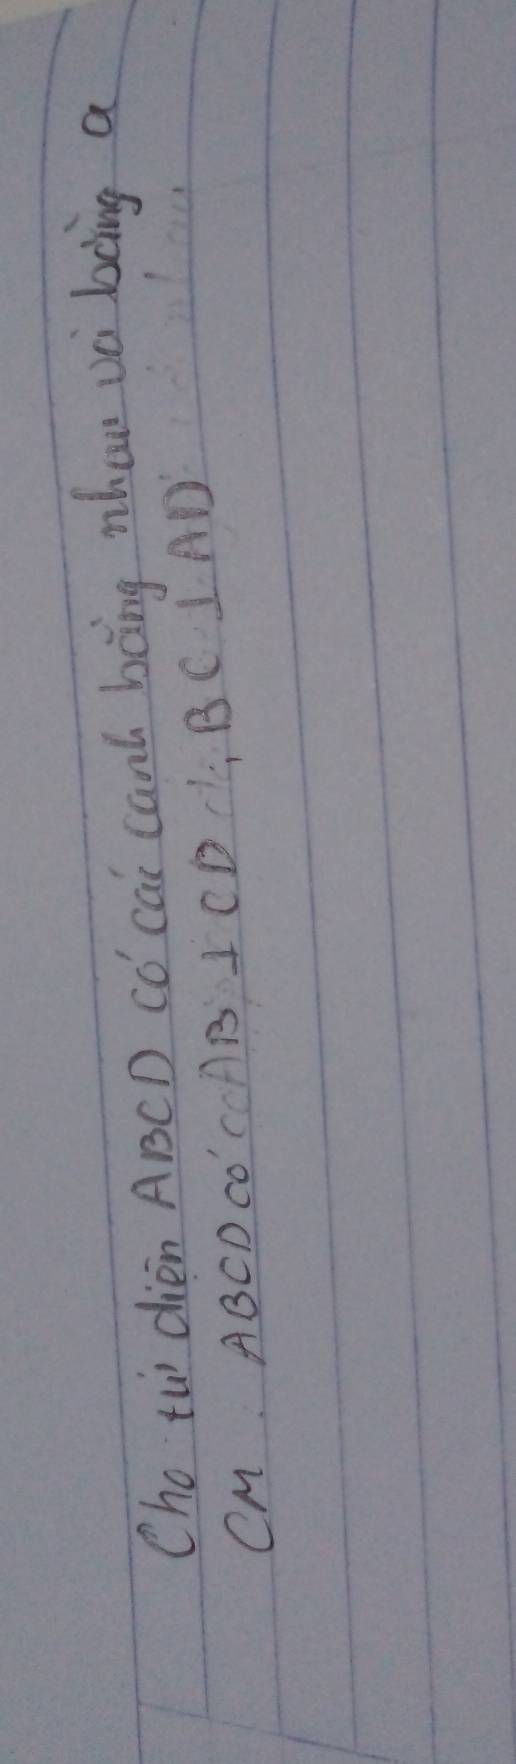 Cho tứ diện ABCD có các cạnh bằng nhau và bằng a
CM: ABCD có AB ⊥ CD, BC ⊥ AD